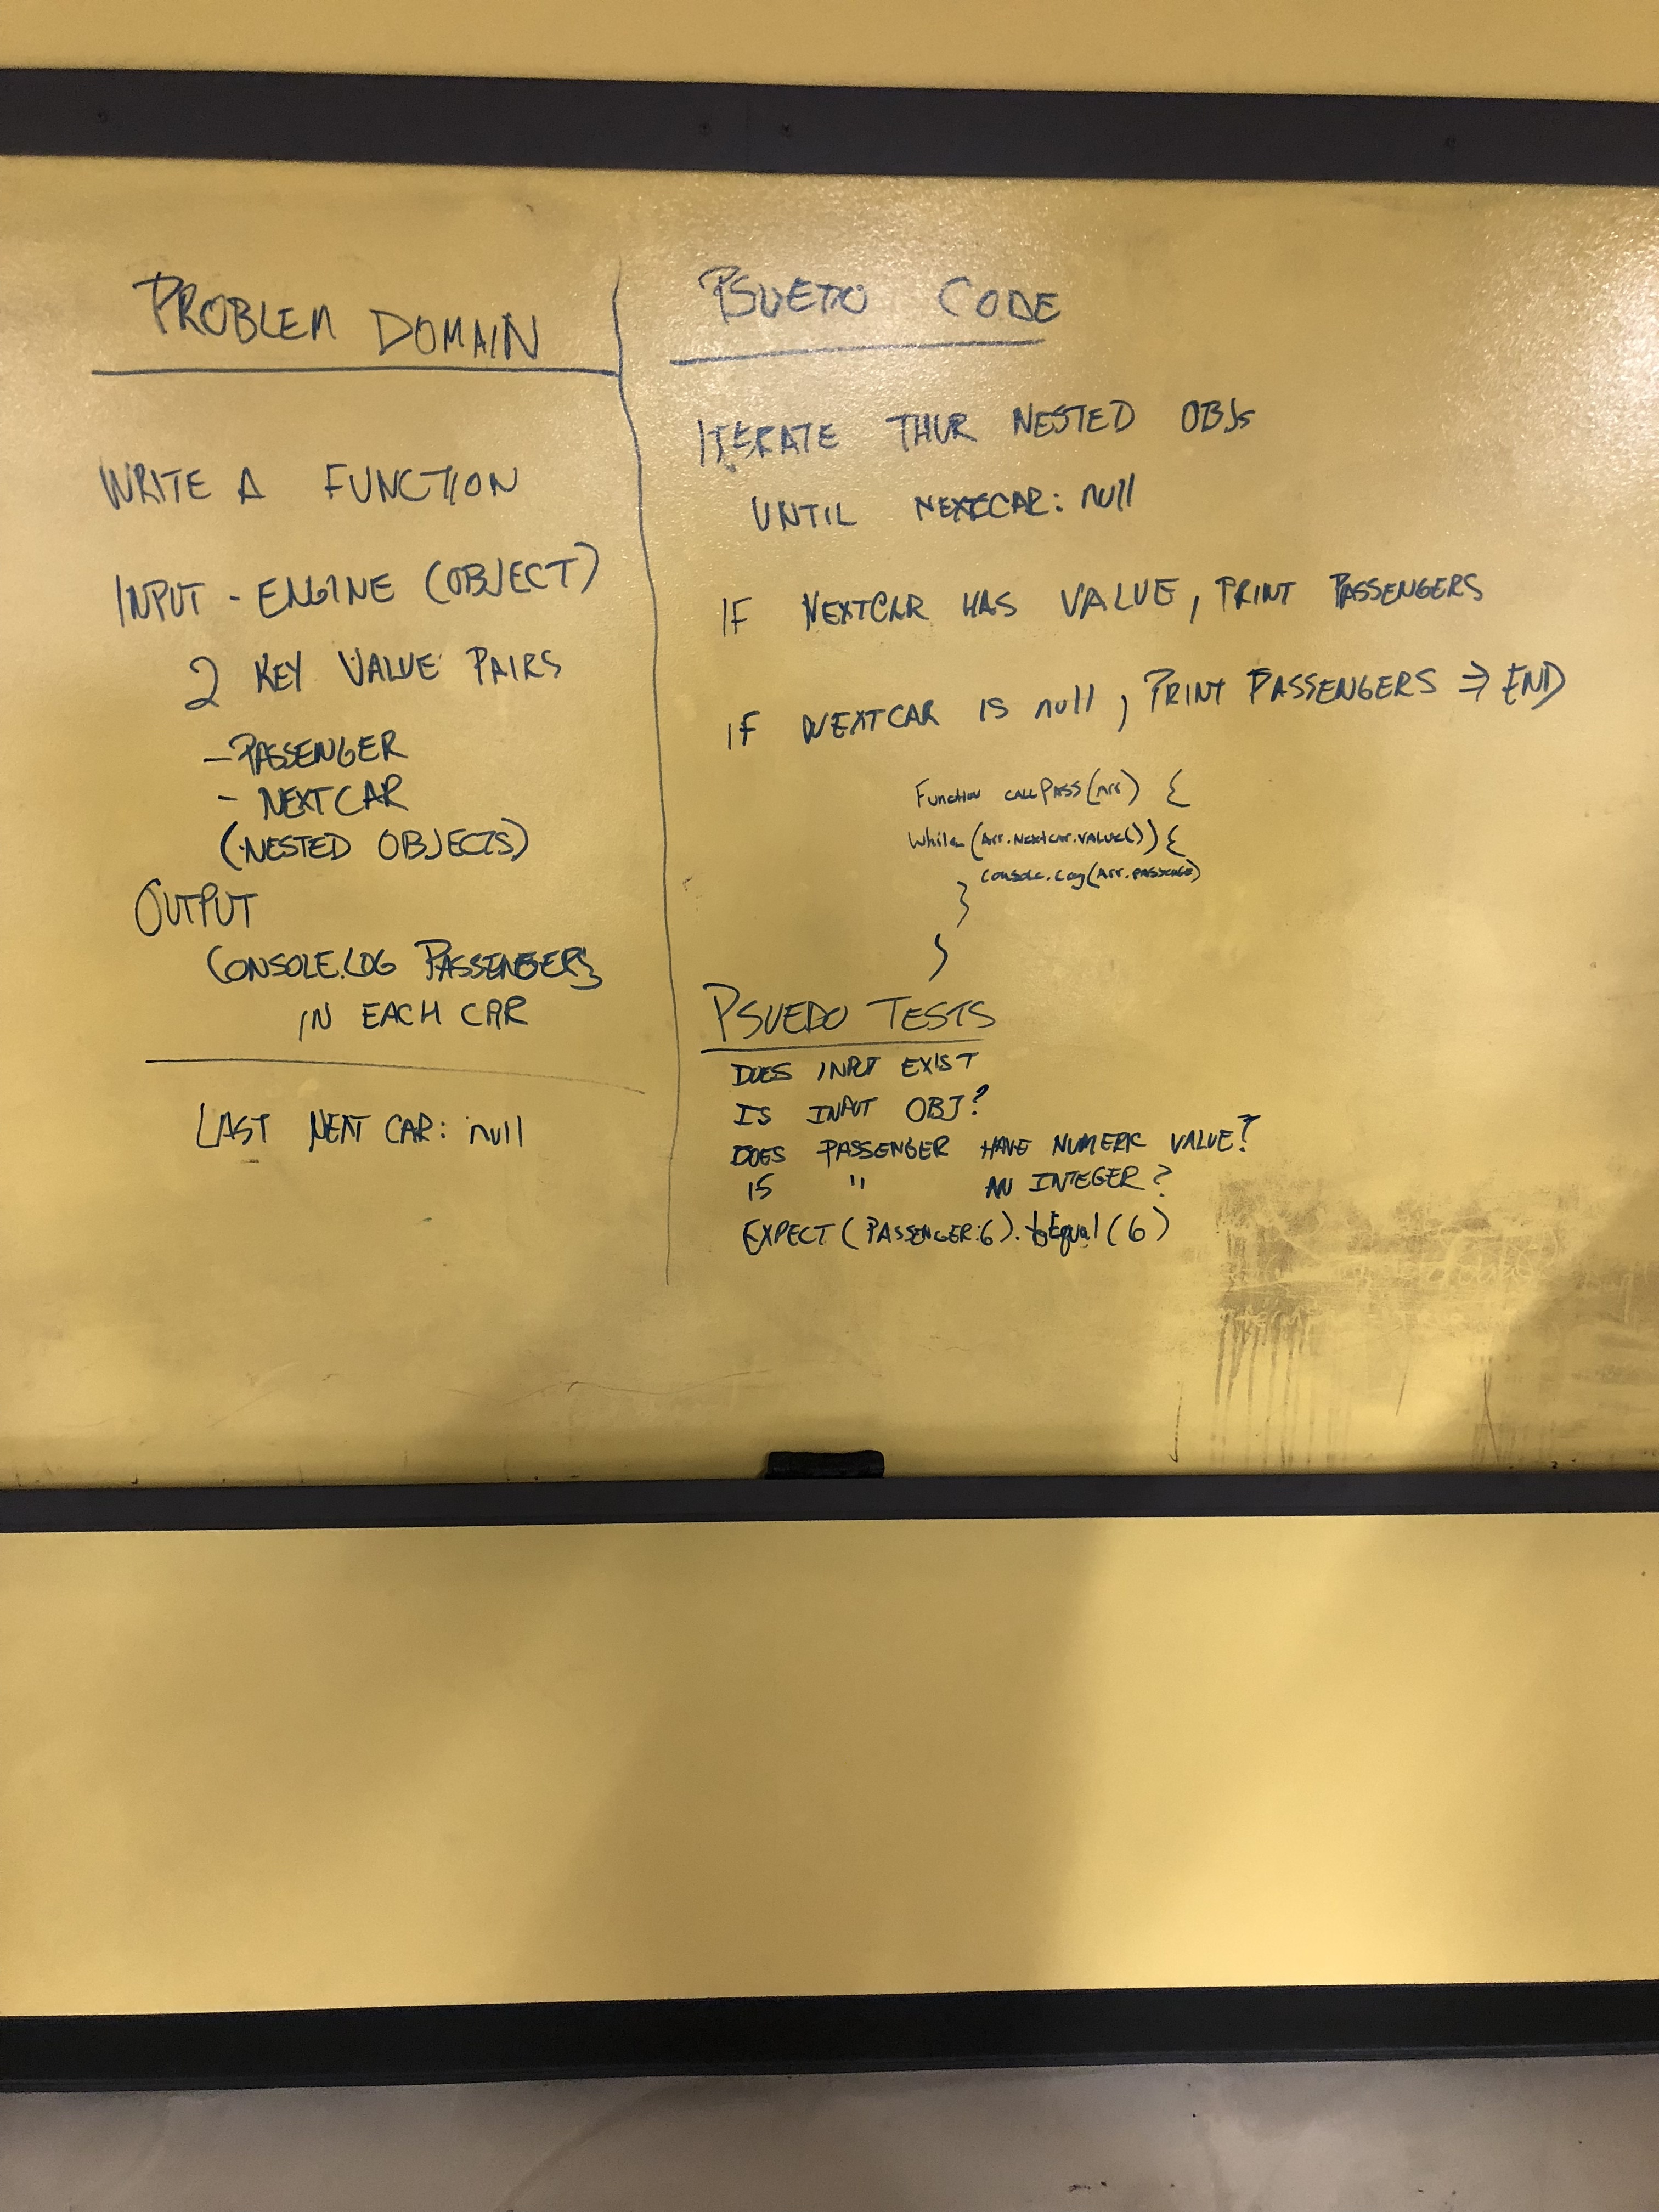 PROBLEM DOMAIN
WRITE A FUNCTION
INPUT - ENGINE (OBJECT)
2 KEY VALUE PAIRS
- PASSENGER
- NEXTCAR
(NESTED OBJECTS)
OUTPUT
CONSOLE.LOG PASSENGERS
IN EACH CAR
LAST NEXT CAR: null
PSUEDO CODE
ITERATE THUR NESTED OBJs
UNTIL NEXTCAR: null
IF NEXTCAR HAS VALUE, PRINT PASSENGERS
IF NEXTCAR IS null, PRINT PASSENGERS => END
Function CALLPASS(Arr) {
While (Arr.NextCar.VALUE()) {
Console.Log(Arr.PASSENGE)
}
}
PSUEDO TESTS
DOES INPUT EXIST
IS INPUT OBJ?
DOES PASSENGER HAVE NUMERIC VALUE?
IS " AN INTEGER?
EXPECT (PASSENGER:6).toEqual(6)